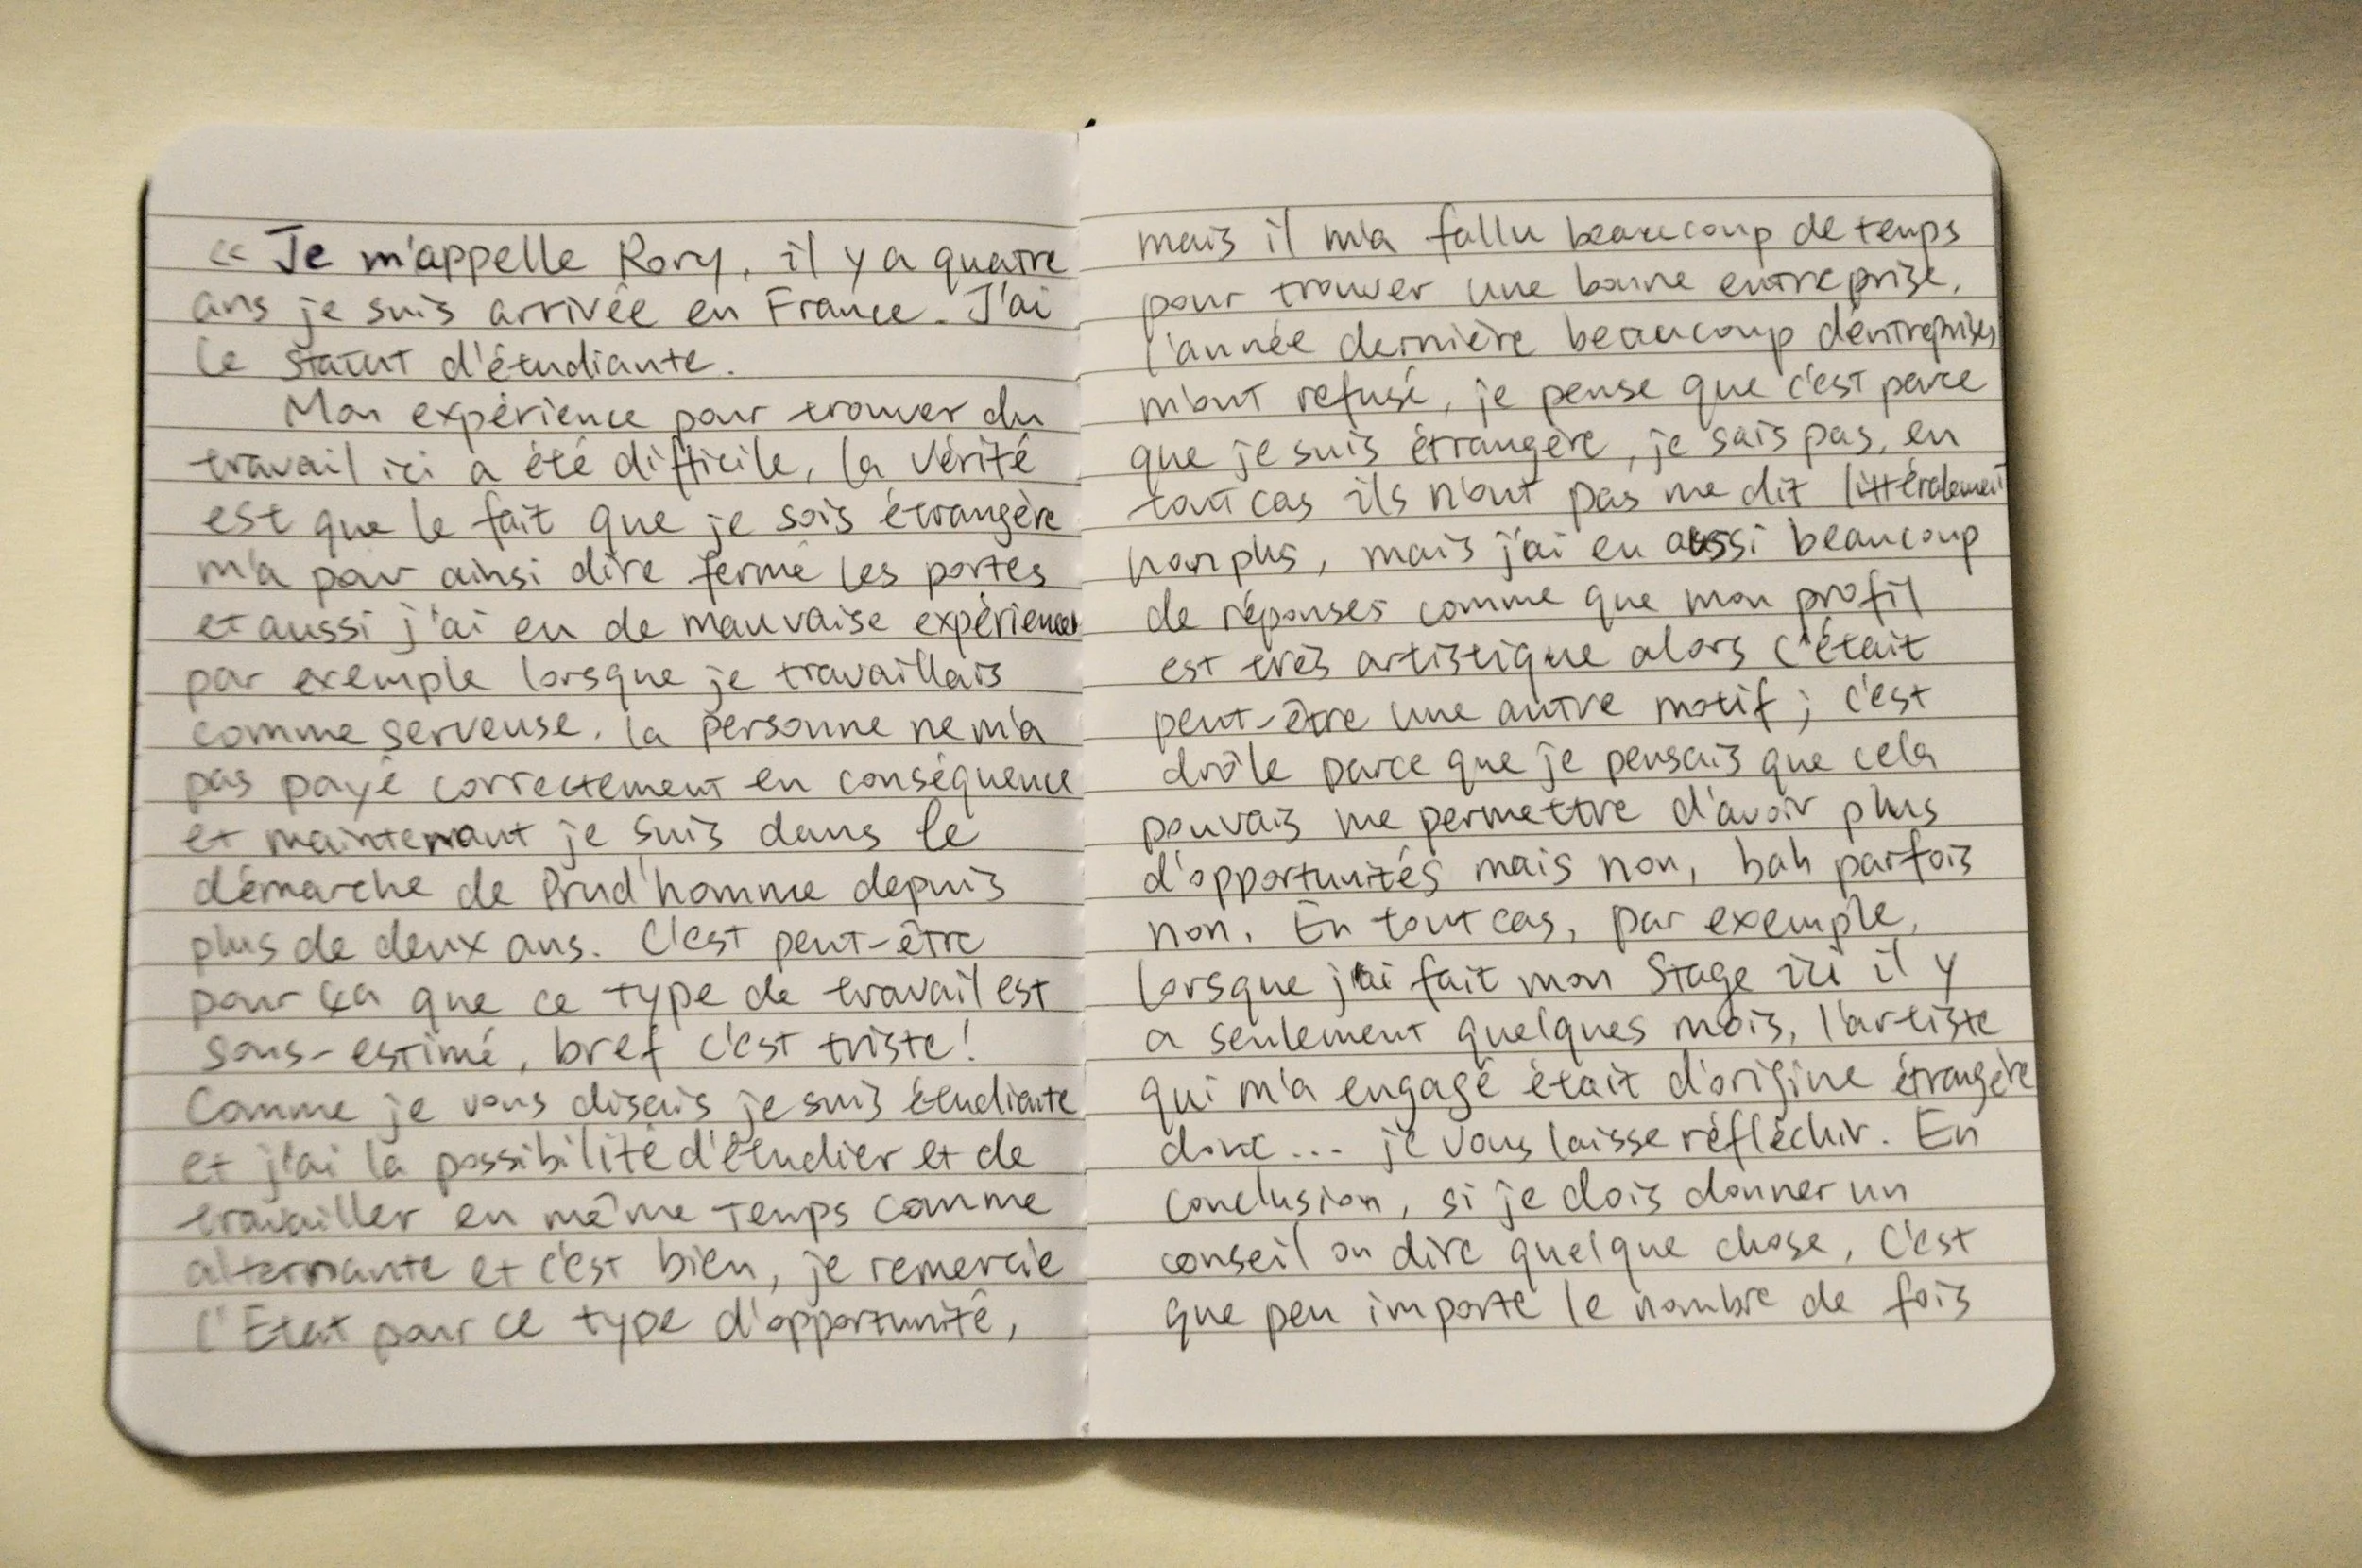 « Je m'appelle Rory, il y a quatre
ans je suis arrivée en France. J'ai
le statut d'étudiante.
Mon expérience pour trouver du
travail ici a été difficile, la vérité
est que le fait que je sois étrangère
m'a pour ainsi dire fermé les portes
et aussi j'ai eu de mauvaise expériences
par exemple lorsque je travaillais
comme serveuse, la personne ne m'a
pas payé correctement en conséquence
et maintenant je suis dans le
démarche de Prud'homme depuis
plus de deux ans. C'est peut-être
pour ça que ce type de travail est
sous-estimé, bref c'est triste!
Comme je vous disais je suis étudiante
et j'ai la possibilité d'étudier et de
travailler en même temps comme
alternante et c'est bien, je remercie
l'Etat pour ce type d'opportunité,
mais il m'a fallu beaucoup de temps
pour trouver une bonne entreprise,
l'année dernière beaucoup d'entreprises
m'ont refusé, je pense que c'est parce
que je suis étrangère, je sais pas, en
tout cas ils n'ont pas me dit littéralement
non plus, mais j'ai eu aussi beaucoup
de réponses comme que mon profil
est très artistique alors c'était
peut-être une autre motif; c'est
drôle parce que je pensais que cela
pouvais me permettre d'avoir plus
d'opportunités mais non, bah parfois
non. En tout cas, par exemple,
lorsque j'ai fait mon stage ici il y
a seulement quelques mois, l'artiste
qui m'a engagé était d'origine étrangère
donc... je vous laisse réfléchir. En
conclusion, si je dois donner un
conseil ou dire quelque chose, c'est
que peu importe le nombre de fois